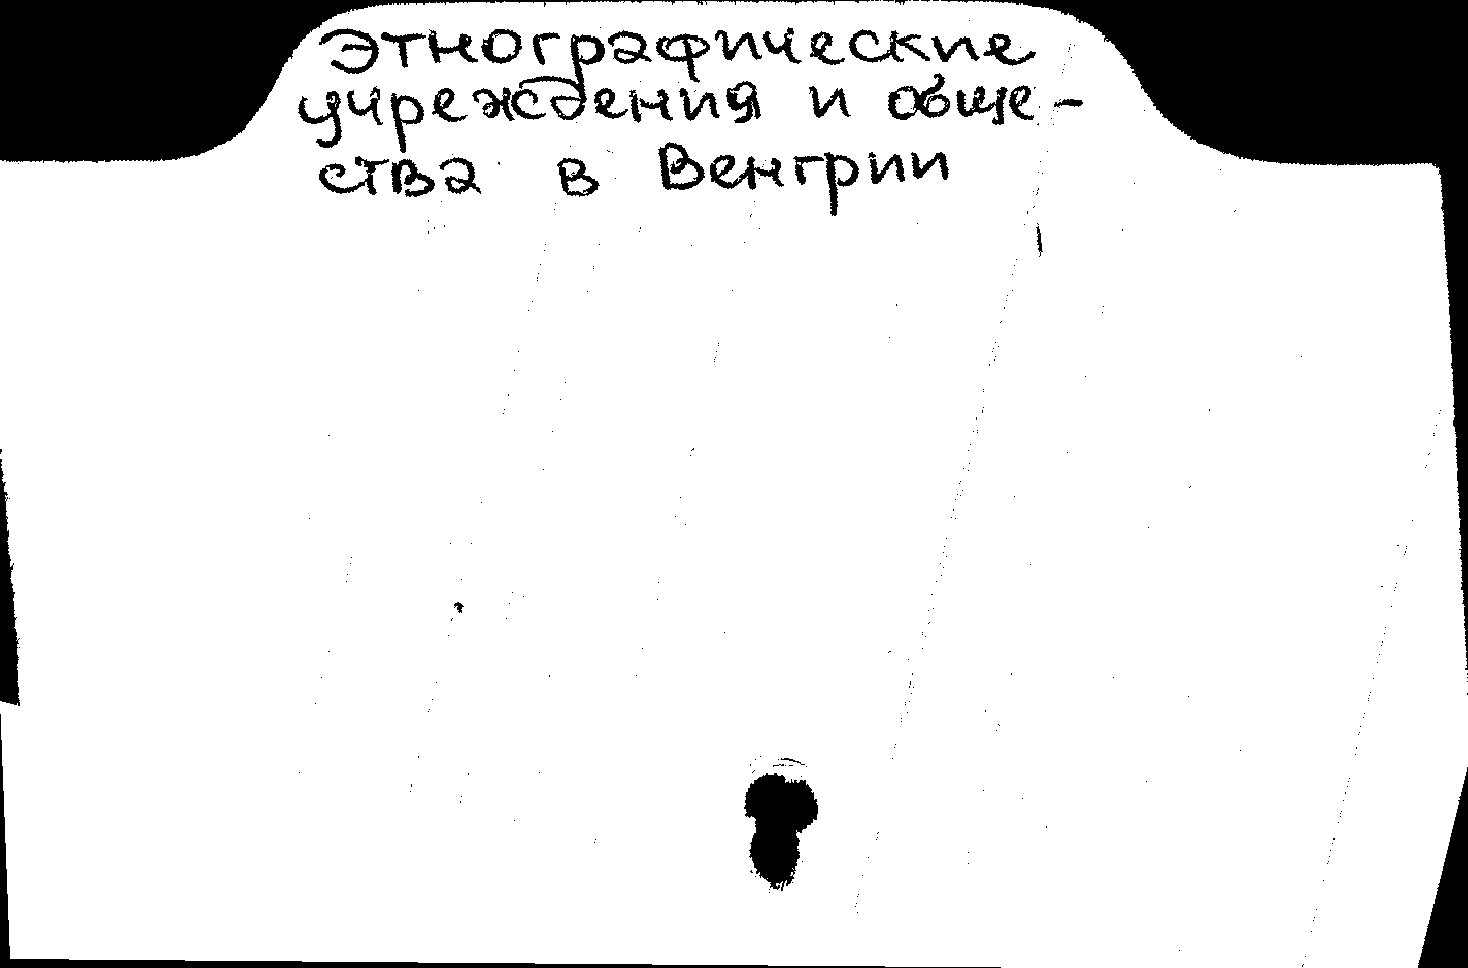 Этнографические
учреждения и обще-
ства в Венгрии